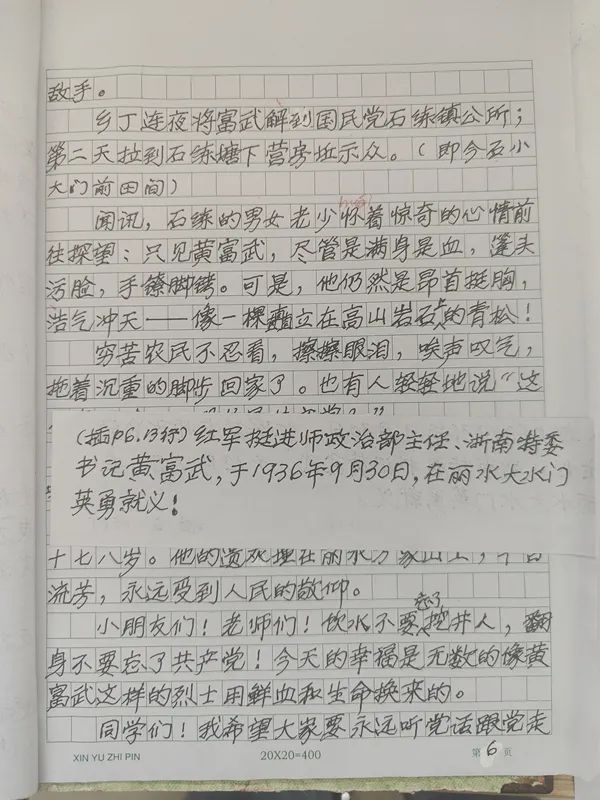 敌手。
乡丁连夜将富武解到国民党石练镇公所；
第二天拉到石练塘下营房坵示众。（即今石小
大门前田间）
闻讯，石练的男女老少怀着惊奇的心情前
往探望：只见黄富武，尽管是满身是血，篷头
污脸，手镣脚铐。可是，他仍然是昂首挺胸，
浩气冲天——像一棵直立在高山岩石上的青松！
穷苦农民不忍看，擦擦眼泪，唉声叹气，
拖着沉重的脚步回家了。也有人轻轻地说“这
(插P6.13行) 红军挺进师政治部主任、浙南特委
书记黄富武，于1936年9月30日，在丽水大水门
英勇就义！
十七八岁。他的遗
流芳，永远受到人民的敬仰。
小朋友们！老师们！饮水不要忘了挖井人，翻
身不要忘了共产党！今天的幸福是无数的像黄
富武这样的烈士用鲜血和生命换来的。
同学们！我希望大家要永远听党话跟党走
XIN YU ZHI PIN 20X20=400 第6页